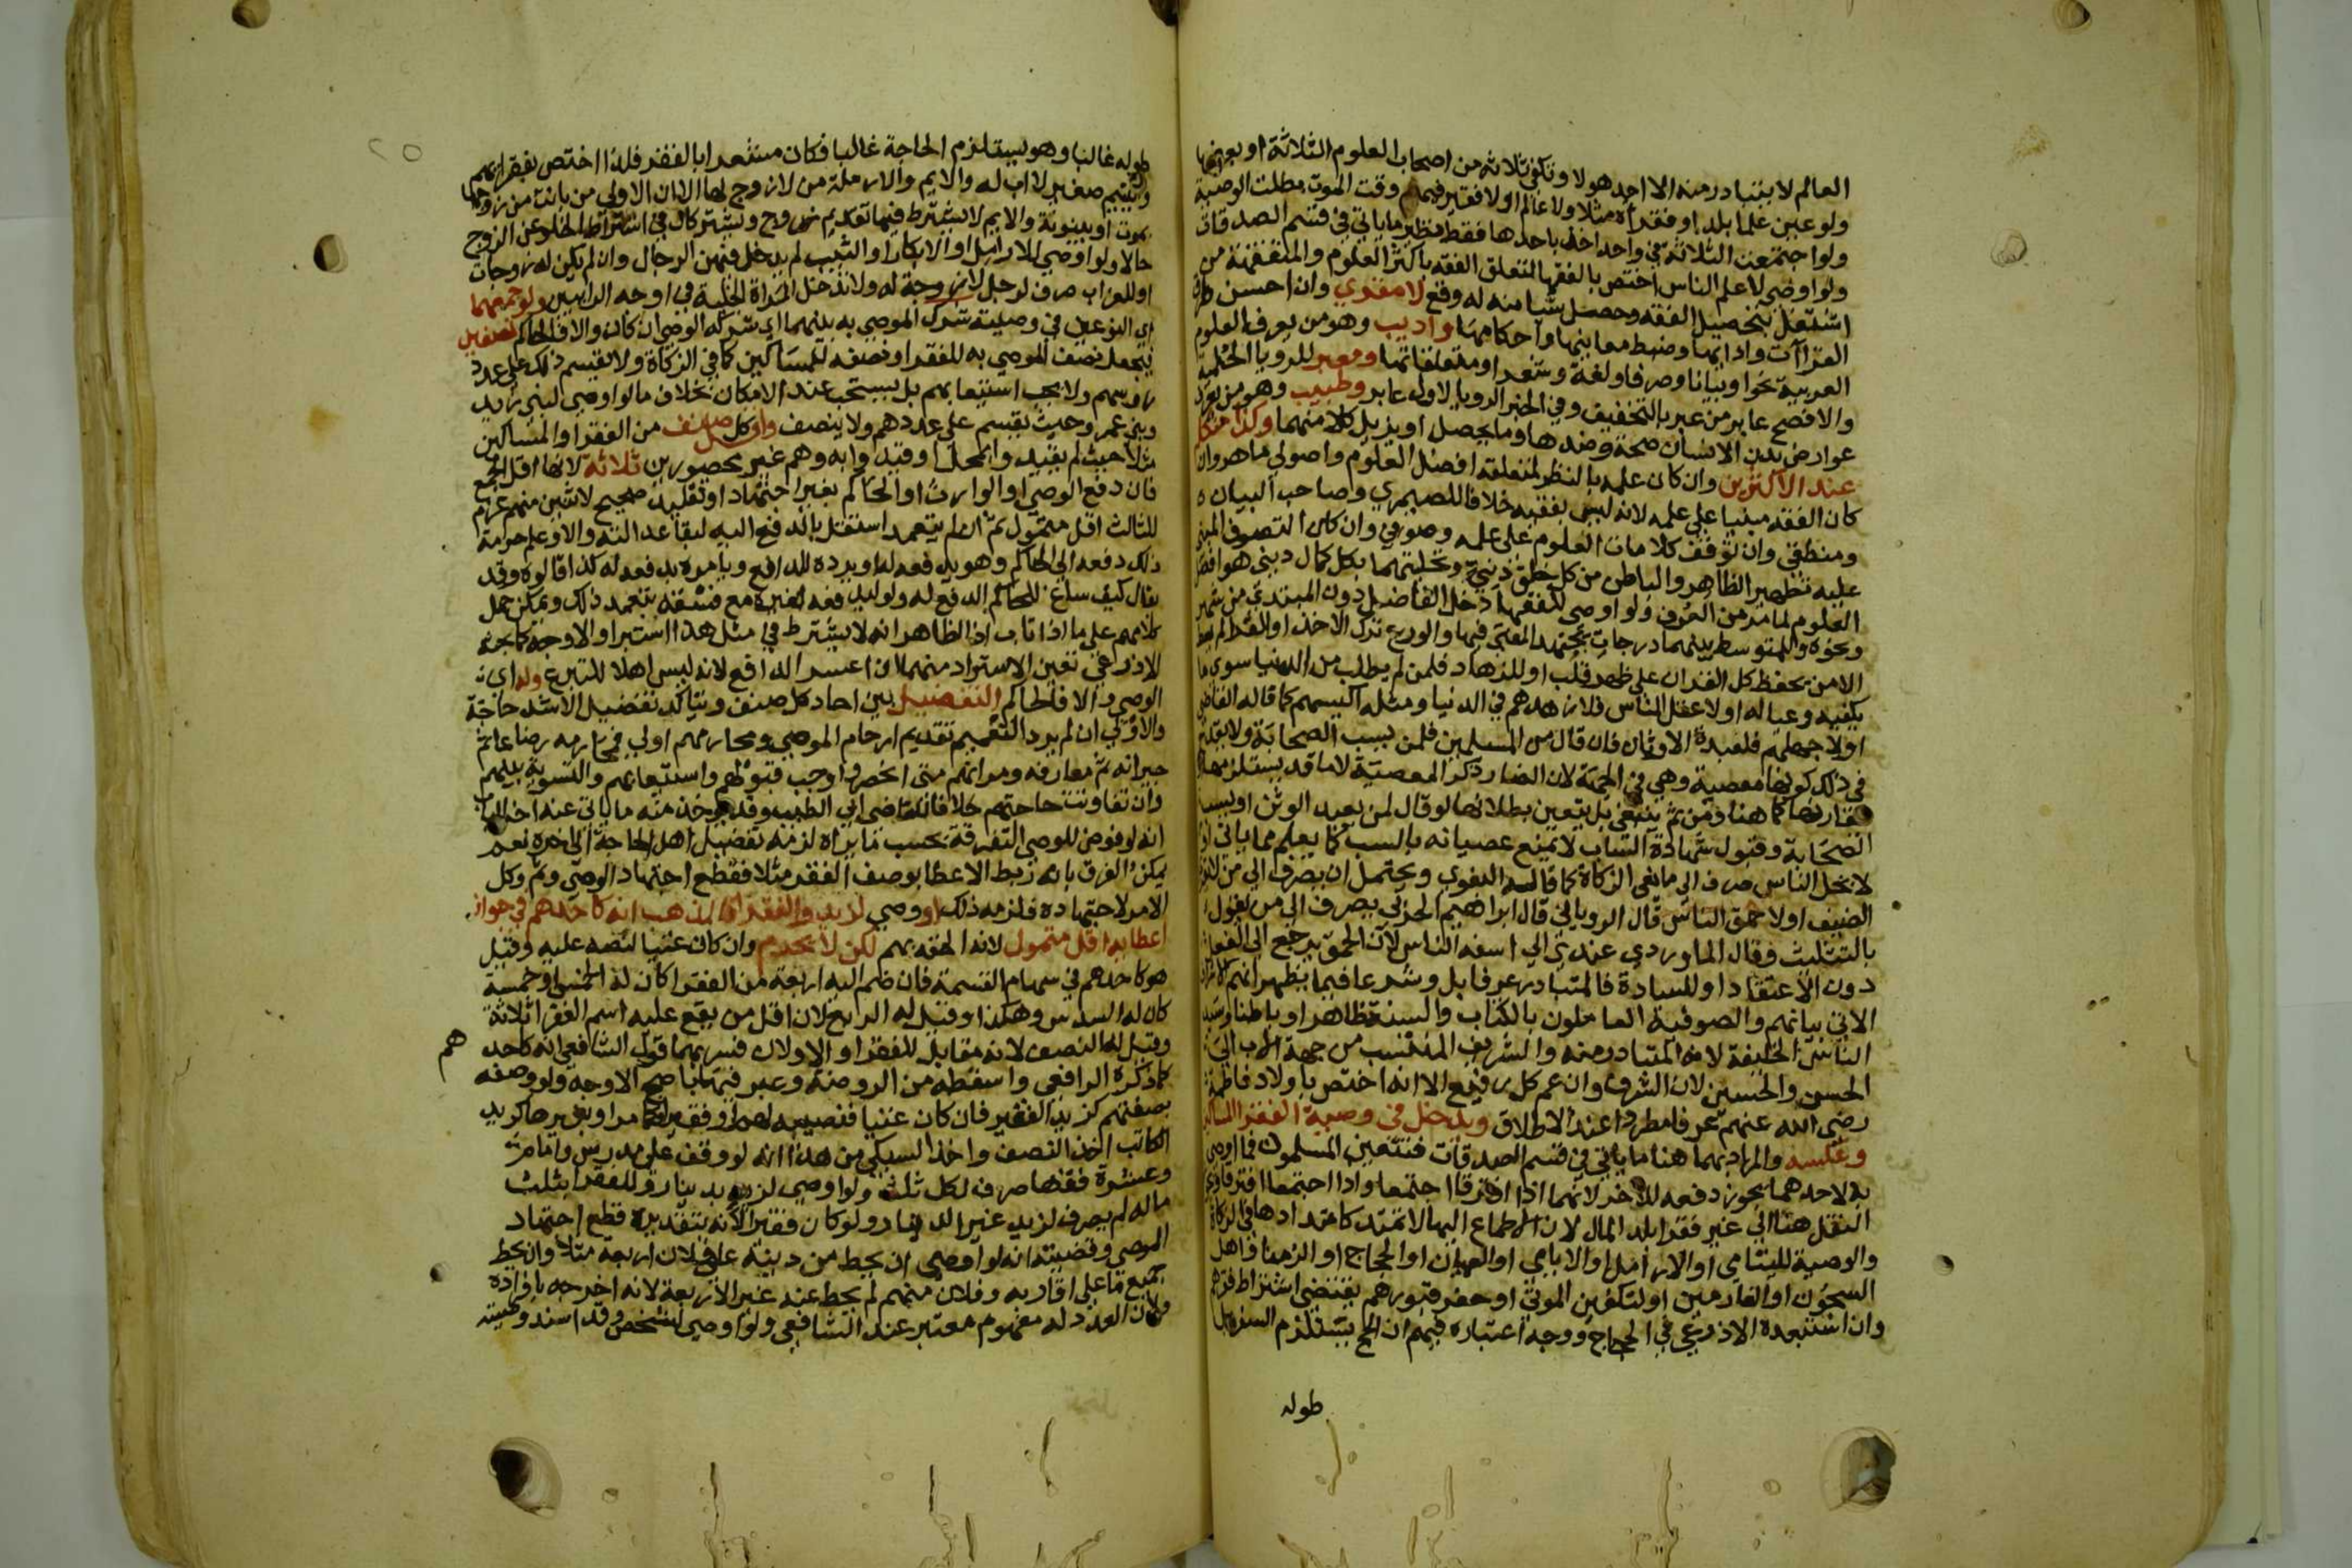 العالم لا يتبادر منه الا احد هولا وتكفي ثلاثة من اصحاب العلوم الثلاثة او بعضها
ولو عين علما بلد او فقراه مثلا ولا عالم او لا فقير فيهم وقت الموت بطلت الوصية
ولو اجتمعت الثلاثة في واحد اخذ باحدها فقط نظير ما ياتي في قسم الصدقات
ولو اوصي لاعلم الناس اختص بالفقها لتعلق الفقه باكثر العلوم والمتفقهة من
اشتغل بتحصيل الفقه وحصل شيا منه له وقع لا مقري وان احسن طرق
القراآت واداءها وضبط معانيها واحكامها واديب وهو من يعرف العلوم
العربية نحوا وبيانا وصرفا ولغة وشعرا ومتعلقاتها ومعبر للرويا الحلمية
والافصح عابر من عبر بالتخفيف وفي الخبر الرويا لاول عابر وطبيب وهو من يعرف
عوارض بدن الانسان صحة وضدها وما يحصل او يزيل كلا منهما وكذا متكلم
عند الاكثرين وان كان علمه بالنظر لمتعلقه افضل العلوم واصولي ماهر وان
كان الفقه مبنيا علي علمه لانه ليس بفقيه خلافا للصيمري وصاحب البيان
ومنطقي وان توقف كلامات العلوم علي علمه وصوفي وان كان التصوف المبني
عليه تطهير الظاهر والباطن من كل خلق دني وتحليتهما بكل كمال ديني هو افضل
العلوم لما مر من العرف ولو اوصي للفقها دخل الفاضل دون المبتدي من شهر
ونحوه وللمتوسط بينهما درجات يجتهد المفتي فيها والورع ترك الاخذ او للقرا لم يعط
الا من يحفظ كل القران علي ظهر قلب او للزهاد فلمن لم يطلب من الدنيا سوي ما
يكفيه وعياله او لاعقل الناس فلازهدهم في الدنيا ومثله اكيسهم كما قاله القاضي
او لاجهلهم فلعبدة الاوثان فان قال من المسلمين فلمن يسب الصحابة ولا يقدح
في ذلك كونها معصية وهي في الجهة لان الضار ذكر المعصية لا ما قد يستلزمها او
يقارنها كما هنا ومن ثم ينبغي بل يتعين بطلانها لو قال لمن يعبد الوثن او يسب
الصحابة وقبول شهادة الساب لا تمنع عصيانه بالسب كما يعلم مما ياتي او
لابخل الناس صرف الي مانعي الزكاة كما قاله البغوي ويحتمل ان يصرف الي من لا يقري
الضيف او لاحمق الناس قال الروياني قال ابراهيم الحربي يصرف الي من يقول
بالتثليث وقال الماوردي عندي الي اسفه الناس لان الحمق يرجع الي الفعل
دون الاعتقاد او للسادة فالمتبادر عرفا بل وشرعا فيما يظهر انهم الاشراف
الاتي بيانهم والصوفية العاملون بالكتاب والسنة ظاهرا وباطنا وسيد
الناس الخليفة لانه المتبادر منه والشريف المنتسب من جهة الاب الي
الحسن والحسين لان الشرف وان عم كل رفيع الا انه اختص باولاد فاطمة
رضي الله عنهم عرفا مطردا عند الاطلاق ويدخل في وصية الفقرا المساكين
وعكسه والمراد بهما هنا ما ياتي في قسم الصدقات فتتعين المسلمون فما اوصي
به لاحدهما يجوز دفعه للاخر لانهما اذا افترقا اجتمعا واذا اجتمعا افترقا ويجوز
النقل هنا الي غير فقرا بلد المال لان الاطماع اليها لا تمتد كامتدادها في الزكاة
والوصية لليتامي او الارامل او الايامي او العميان او الحجاج او الزمنا او اهل
السجون او الغارمين او لتكفين الموتي او حفر قبورهم يقتضي اشتراط فقرهم
وان استبعده الاذرعي في الحجاج ووجه اعتباره فيهم ان الحج يستلزم السفر بل
طوله
طوله غالبا وهو يستلزم الحاجة غالبا فكان مشعرا بالفقر فلذا اختص بفقرائهم
واليتيم صغير لا اب له والايم والارملة من لا زوج لها الا ان الاولي من بانت من زوجها
بموت او بينونة والايم لا يشترط فيها تقديم زوج ويشتركان في اشتراط الخلو عن الزوج
حالا ولو اوصي للارامل او الابكار او الثيب لم يدخل فيهن الرجال وان لم يكن له زوجات
او للعزاب صرف لرجل لا زوجة له ولا تدخل المراة الخلية في اوجه الرايين ولو جمعهما
اي النوعين في وصيته شرك الموصي به بينهما اي شركه الوصي ان كان والا فالحاكم نصفين
فيجعل نصف الموصي به للفقرا ونصفه للمساكين كما في الزكاة ولا يقسم ذلك علي عدد
روسهم ولا يجب استيعابهم بل يستحب عند الامكان بخلاف ما لو اوصي لبني زيد
وبني عمرو حيث يقسم علي عددهم ولا ينصف واقل كل صنف من الفقرا والمساكين
مثلا حيث لم يقيد وا بمحل او قيدوا به وهم غير محصورين ثلاثة لانها اقل الجمع
فان دفع الوصي او الوارث او الحاكم بغير اجتهاد او تقليد صحيح لاثنين منهم غرم
للثالث اقل متمول ثم ان لم يتعمد استقل بالدفع اليه لبقا عدالته والا وعلم حرمة
ذلك دفعه الي الحاكم وهو يدفعه له او يرده للدافع ويامره بدفعه له كذا قالوه وقد
يقال كيف ساغ للحاكم الدفع له ولو ليدفعه لغيره مع فسقه بتعمد ذلك ويمكن حمل
كلامهم علي ما اذا تاب اذ الظاهر انه لا يشترط في مثل هذا استبرا والاوجه كما بحثه
الاذرعي تعين الاسترداد منهما ان اعسر الدافع لانه ليس اهلا للتبرع وله اي
الوصي والا فالحاكم التفضيل بين احاد كل صنف ويتاكد تفضيل الاشد حاجة
والاولي ان لم يرد التعميم تقديم ارحام الموصي ومحارمهم اولي فمحارمه رضاعا ثم
جيرانه ثم معارفه ومر انهم متي انحصروا وجب قبولهم واستيعابهم والتسوية بينهم
وان تفاوتت حاجتهم خلافا للقاضي ابي الطيب وقد يوخذ منه ما ياتي عند اخر الباب
انه لو فوض للوصي التفرقة بحسب ما يراه لزمه تفضيل اهل الحاجة الي اخره نعم
يمكن الفرق بانه ربط الاعطا بوصف الفقر مثلا فقطع اجتهاد الوصي وثم وكل
الامر لاجتهاده فلزمه ذلك او وصي لزيد والفقرا فالمذهب انه كاحدهم في جواز
اعطايه اقل متمول لانه الحقه بهم لكن لا يحرم وان كان غنيا لنصه عليه وقيل
هو كاحدهم في سهام القسمة فان ضم اليه اربعة من الفقرا كان له الخمس او خمسة
كان له السدس وهكذا وقيل له الرابع لان اقل من يقع عليه اسم الفقرا ثلاثة
وقيل له النصف لانه مقابل للفقرا والاولان فسر بهما قول الشافعي انه كاحد
هم
كما ذكره الرافعي واسقطه من الروضة وعبر فيها باصح الاوجه ولو وصفه
بصفتهم كزيد الفقير فان كان غنيا فنصيبه لهم او فقيرا فكما مر او بغيرها كزيد
الكاتب اخذ النصف واخذ السبكي من هذا انه لو وقف علي مدرس وامام
وعشرة فقها صرف لكل ثلث ولو اوصي لزيد بدينار وللفقرا بثلث
ماله لم يصرف لزيد غير الدينار ولو كان فقيرا لانه بتقديره قطع اجتهاد
الموصي وقضيته انه لو اوصي ان يحط من دينه علي فلان اربعة مثلا وان يحط
جميع ما علي اقاربه وفلان منهم لم يحط عنه غير الاربعة لانه اخرجه بافراده
ولان العدد له مفهوم معتبر عند الشافعي ولو اوصي لشخص وقد اسند وصيته